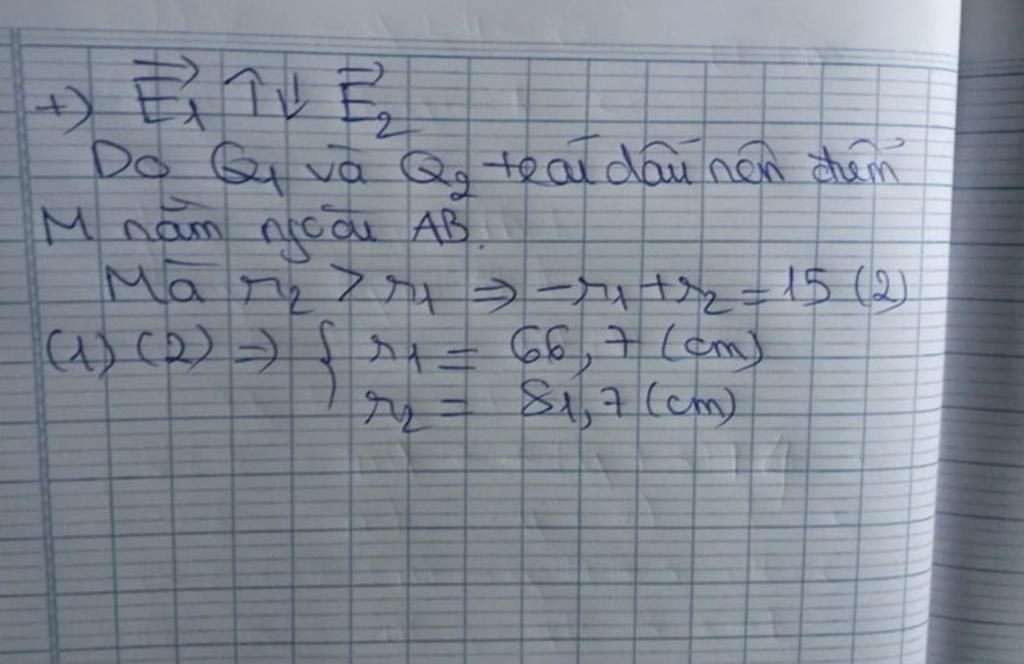 +) E₁ ↑↓ E₂
Do Q₁ và Q₂ trái dấu nên điểm
M nằm ngoài AB.
Mà r₂ > r₁ ⇒ -r₁ + r₂ = 15 (2)
(1) (2) ⇒ { r₁ = 66,7 (cm)
r₂ = 81,7 (cm)